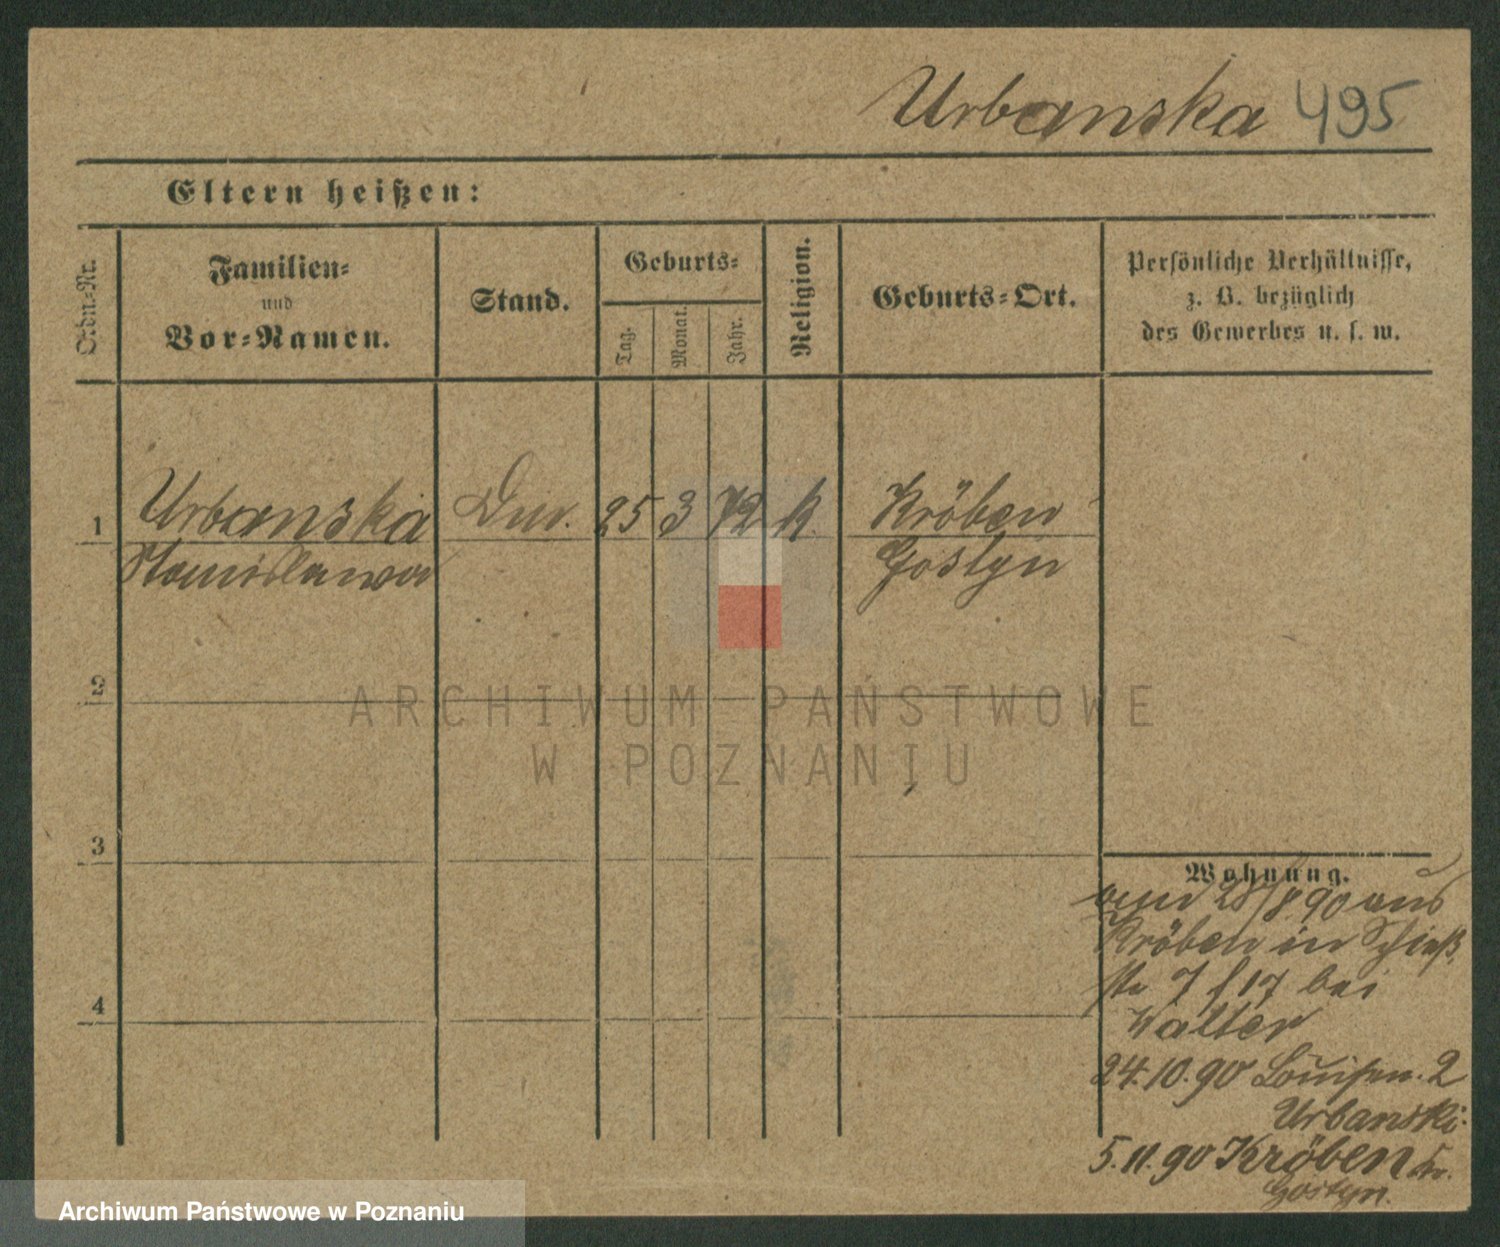 Urbanska 495
Eltern heißen:
Ordn=Nr.
Familien=
und
Vor=Namen.
Stand.
Geburts=
Tag.
Monat.
Jahr.
Religion.
Geburts=Ort.
Persönliche Verhältnisse,
z. B. bezüglich
des Gewerbes u. s. w.
1 Urbanska 25 3 72 k. Kröben
Stanislawa Gostyn
2
3
4
Wohnung.
28/8 90 aus
Kröben in Schieß
str 7 bei
Walter
24.10.90 Louisen. 2
Urbanski
5.11.90 Kröben Kr.
Gostyn.
ARCHIWUM PAŃSTWOWE
W POZNANIU
Archiwum Państwowe w Poznaniu